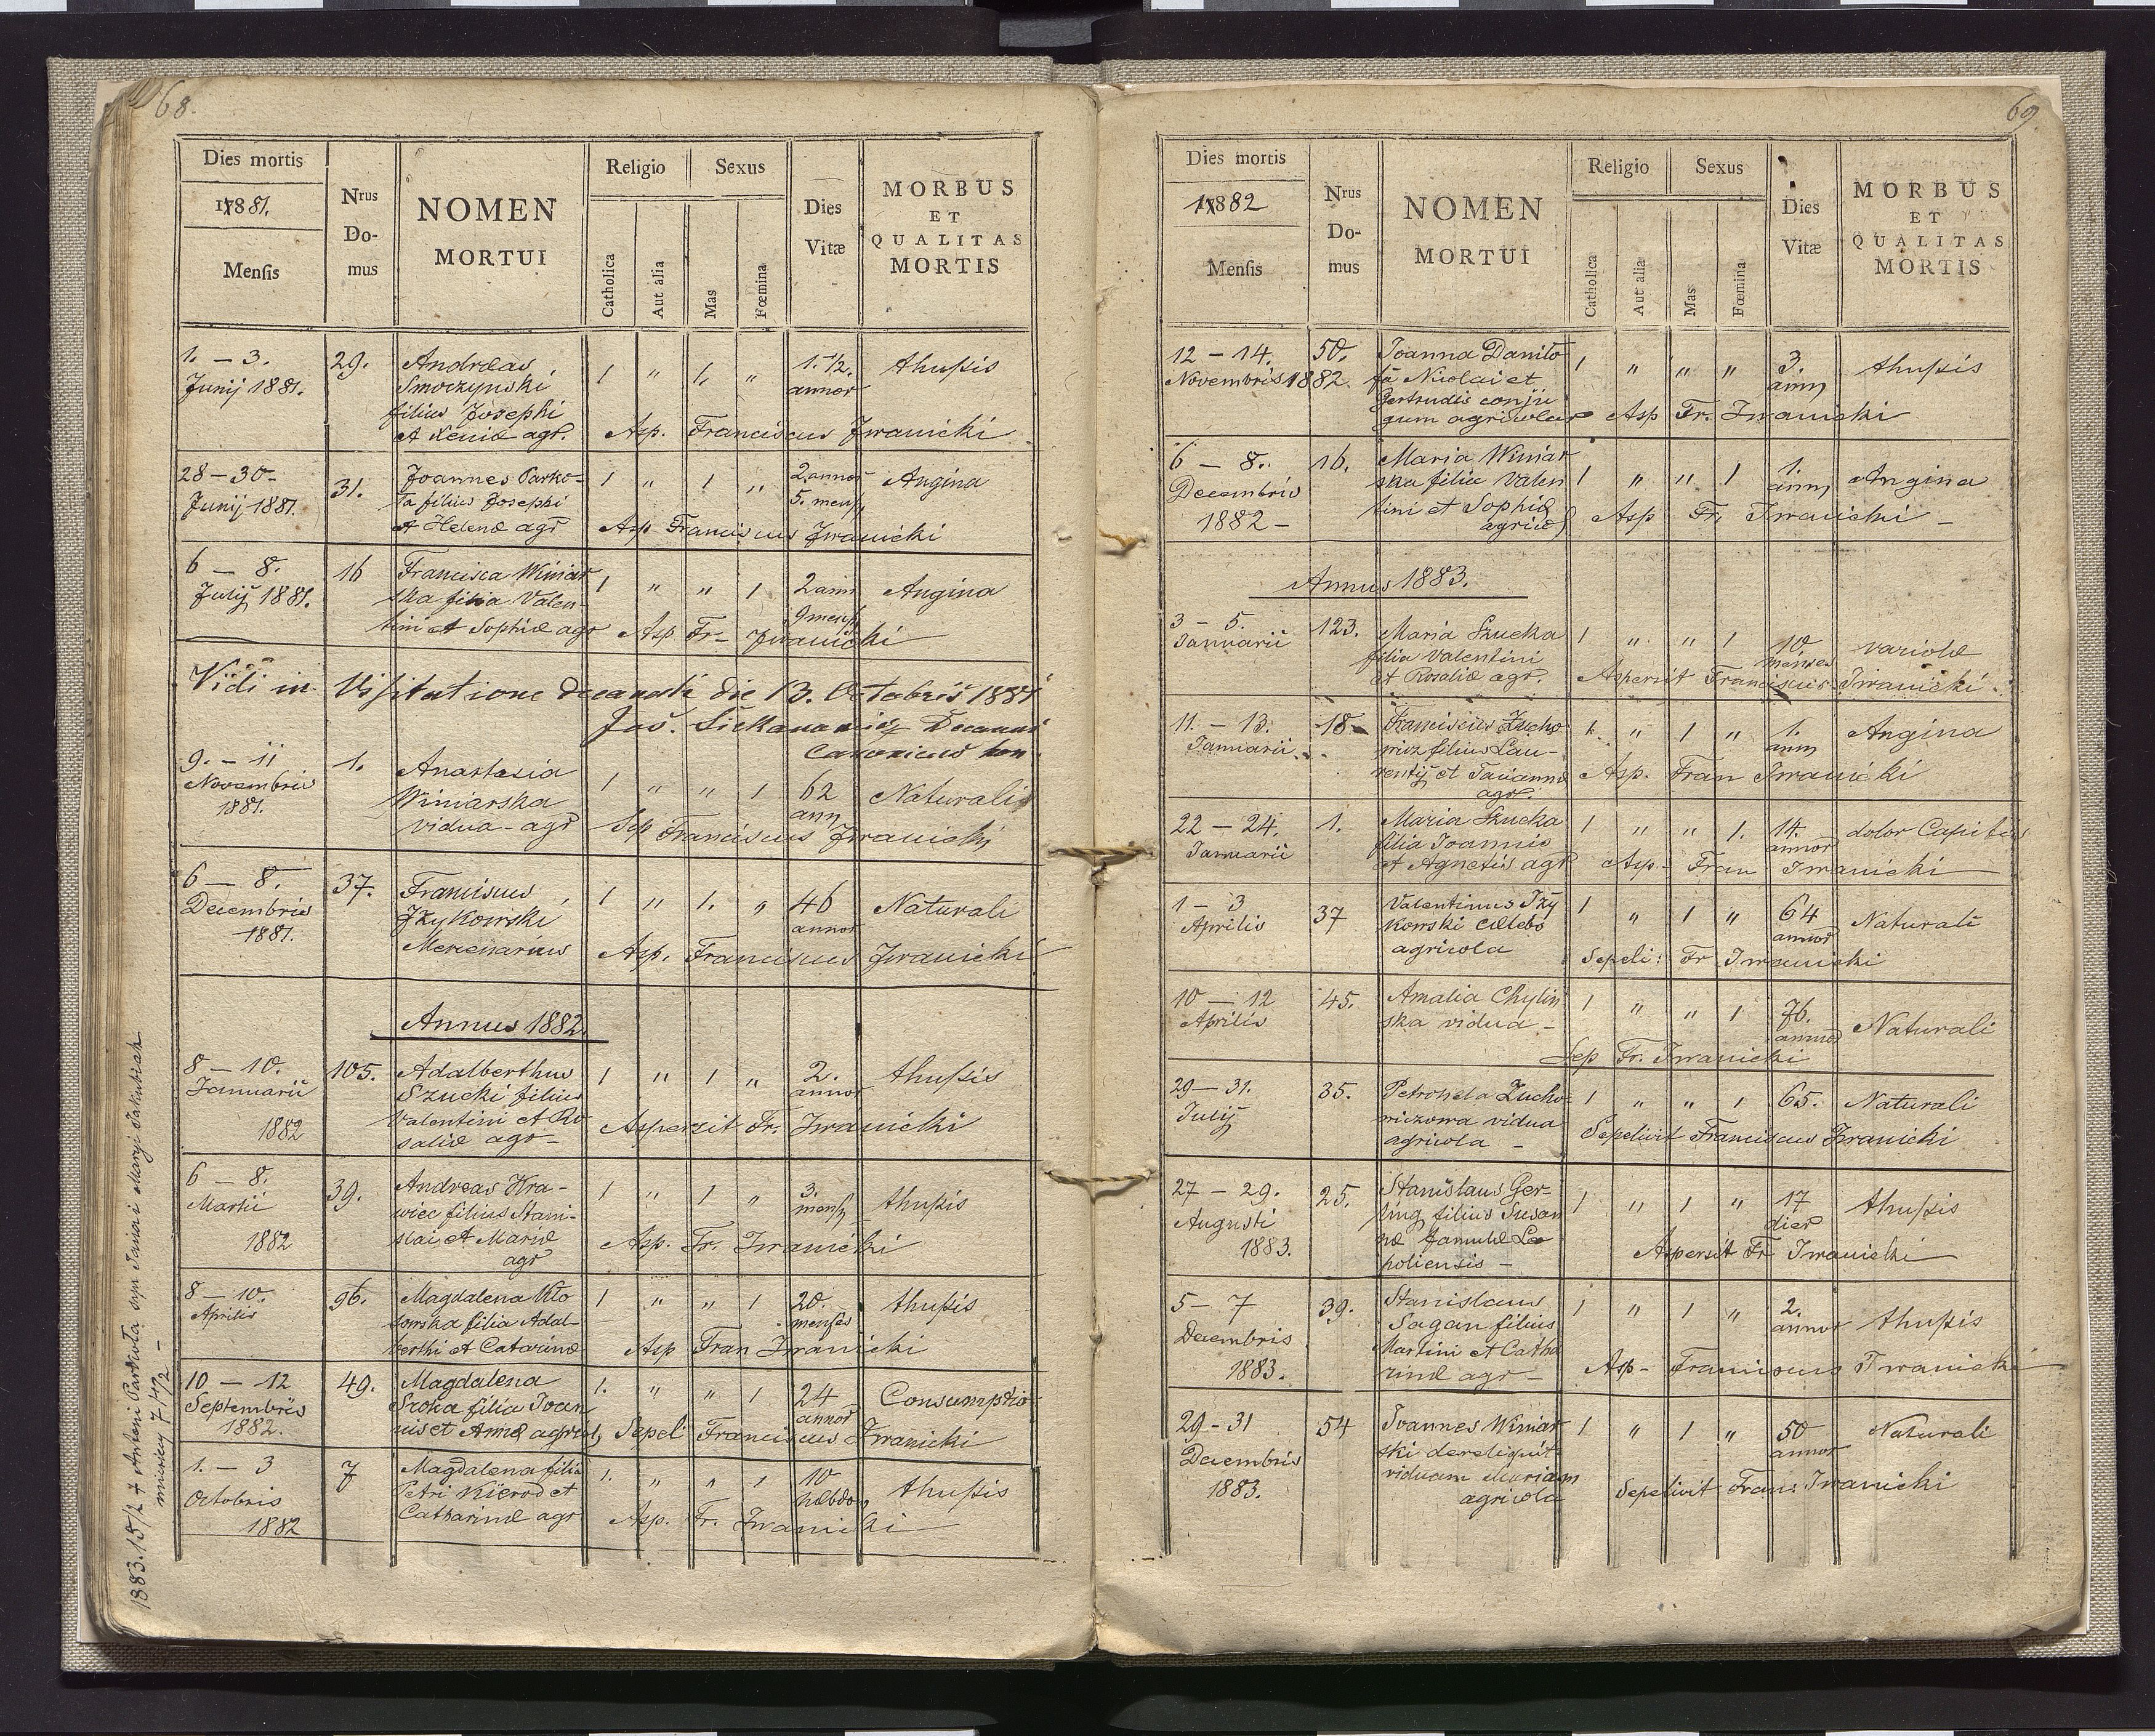 68.
Dies mortis
1881.
Mensis
Nrus
Do-
mus
NOMEN
MORTUI
Religio
Catholica
Aut alia
Sexus
Mas
Fœmina
Dies
Vitæ
MORBUS
ET
QUALITAS
MORTIS
1. – 3. 29. Andreas 1 " 1. " 1. 1/2. thußis
Junij 1881. Smoczynski annor
filius Josephi
et Xeniæ agr. Asp. Franciscus Iwanicki
28 – 30 – 31. Joannes Parko- 1 " 1 " 2 annor Angina
Junij 1881. ta filius Josephi 5. mens
et Helenæ agr Asp Franciscus Iwanicki
6 – 8. 16 Francisca Winiar 1 " " 1 2 ann Angina
Julij 1881. ska filia Valen 9 mens
tini et Sophiæ agr Asp Fr – Iwanicki
Vidi in Visitatione decanali die 13. Octobris 1881
Decanus
Canonicus hon.
9. – 11 1. Anastasia 1 " " 1 62 Naturali
Novembris Winiarska ann
1881. vidua – agr Sep Franciscus Iwanicki
6 – 8. 37. Franciscus 1 " 1. " 46 Naturali
Decembris Izykowski annor
1881. Mercenarius Asp. Franciscus Iwanicki
Annus 1882.
8 – 10. 105. Adalberthus 1 " 1 " 2. thußis
Januarii Szucki filius annor
1882 Valentini et Ro Aspersit Fr. Iwanicki
saliæ agr –
6 – 8. 39. Andreas Kra- 1 " 1 " 3. thußis
Martii wiec filius Stani- mens
1882 slai et Mariæ Asp. Fr. Iwanicki
agr
8 – 10. 96. Magdalena Kło 1 " " 1 20. thußis
Aprilis sowska filia Adal- menses
berthi et Catarinæ Asp Fran Iwanicki
10 – 12 49. Magdalena 1. " " 1 24 Consumptio
Septembris Sroka filia Joan annor
1882. nis et Annæ agricol, Sepel Franciscus Iwanicki
1. – 3 7 Magdalena filia 1. " " 1 10 thußis
Octobris Petri Kierod et hebdo
1882 Catharinæ agr Asp. Fr. Iwanicki
1883. 15/2 + Antoni Parkota syn Jana i Maryi Jakubiak
miesięcy 7 1/2 –
69
Dies mortis
1882
Mensis
Nrus
Do-
mus
NOMEN
MORTUI
Religio
Catholica
Aut aliæ
Sexus
Mas
Fœmina
Dies
Vitæ
MORBUS
ET
QUALITAS
MORTIS
12 – 14. 50. Joanna Daniło 1 " " " 3. thußis
Novembris 1882. fa Nicolai et ann
Gertrudis conju
gum agricolar Asp Fr. Iwanicki
6 – 8. 16. Maria Winiar 1 " " 1 1. Angina
Decembris ska filia Valen ann
1882 – tini et Sophiæ Asp Fr. Iwanicki –
agricol
Annus 1883.
3 – 5. 123. Maria Szucka 1 " " 1 10 variolæ
Januarii filia Valentini menses
et Rosaliæ agr. Aspersit Franciscus Iwanicki
11. – 13. 18 Franciscus Zucho 1. " 1 " 1. Angina
Januarii wicz filius Lau- ann
rentij et Joannæ Asp. Fran Iwanicki
agr.
22 – 24. 1. Maria Szucka 1 " " 1. 14. dolor Capitis
Januarii filia Joannis annor
et Agnetis agr Asp – Fran Iwanicki
1 – 3 37 Valentinus Izy 1 " 1 " 64 Naturali
Aprilis kowski cælebs annor
agricola Sepeli: Fr Iwanicki
10 – 12 45. Amalia Chylin 1 " " 1 76. Naturali
Aprilis ska vidua – annor
Sep Fr. Iwanicki
29 – 31. 35. Petronela Zucho- 1 " " 1 65. Naturali
Julij wiczowa vidua
agricola – Sepelivit Franciscus Iwanicki
27 – 29. 25. Stanislaus Ger- 1 " 1 " 17 thußis
Augusti ling filius Susan dier
1883. næ famulæ Leo Aspersit Fr Iwanicki
poliensis –
5 – 7 39. Stanislaus 1 " 1 " 2. thußis
Decembris Sagan filius annor
1883. Martini et Catha
rinæ agr – Asp – Franciscus Iwanicki
29 – 31 54 Joannes Winiar 1 " 1 " 50 Naturali
Decembris ski dereliquit annor
1883. viduam Mariam
agricola Sepelivit Fran: Iwanicki